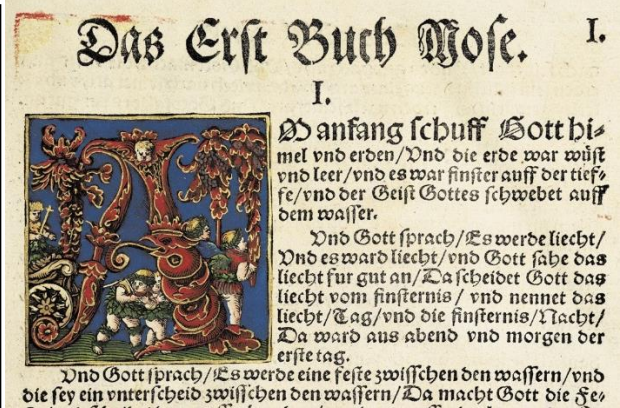 Das Erſt Buch Moſe. I.
I.
AM anfang ſchuff Gott hi⸗
mel vnd erden/Vnd die erde war wüſt
vnd leer/vnd es war finſter auff der tief⸗
fe/vnd der Geiſt Gottes ſchwebet auff
dem waſſer.
Vnd Gott ſprach/Es werde liecht/
Vnd es ward liecht/vnd Gott ſahe das
liecht fur gut an/Da ſcheidet Gott das
liecht vom finſternis/ vnd nennet das
liecht/Tag/vnd die finſternis/Nacht/
Da ward aus abend vnd morgen der
erſte tag.
Vnd Gott ſprach/Es werde eine feſte zwiſſchen den waſſern/vnd
die ſey ein vnterſcheid zwiſſchen den waſſern/Da macht Gott die Fe⸗